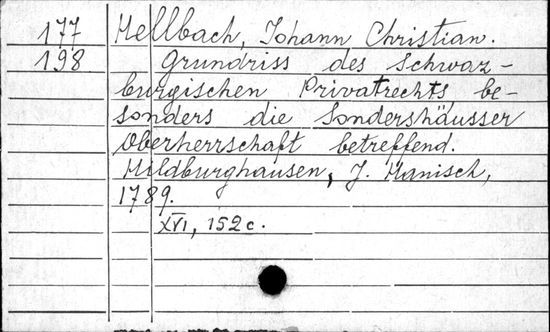 177 Hellbach, Johann Christian.
198 Grundriss des Schwaz-
burgischen Privatrechts, be-
sonders die Sondershäusser
Oberherrschaft betreffend.
Hildburghausen, J. Hanisch,
1789.
XVI, 152 c.